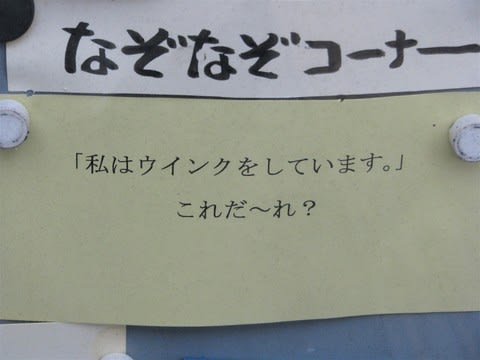 なぞなぞコーナー
「私はウインクをしています。」
これだ～れ？